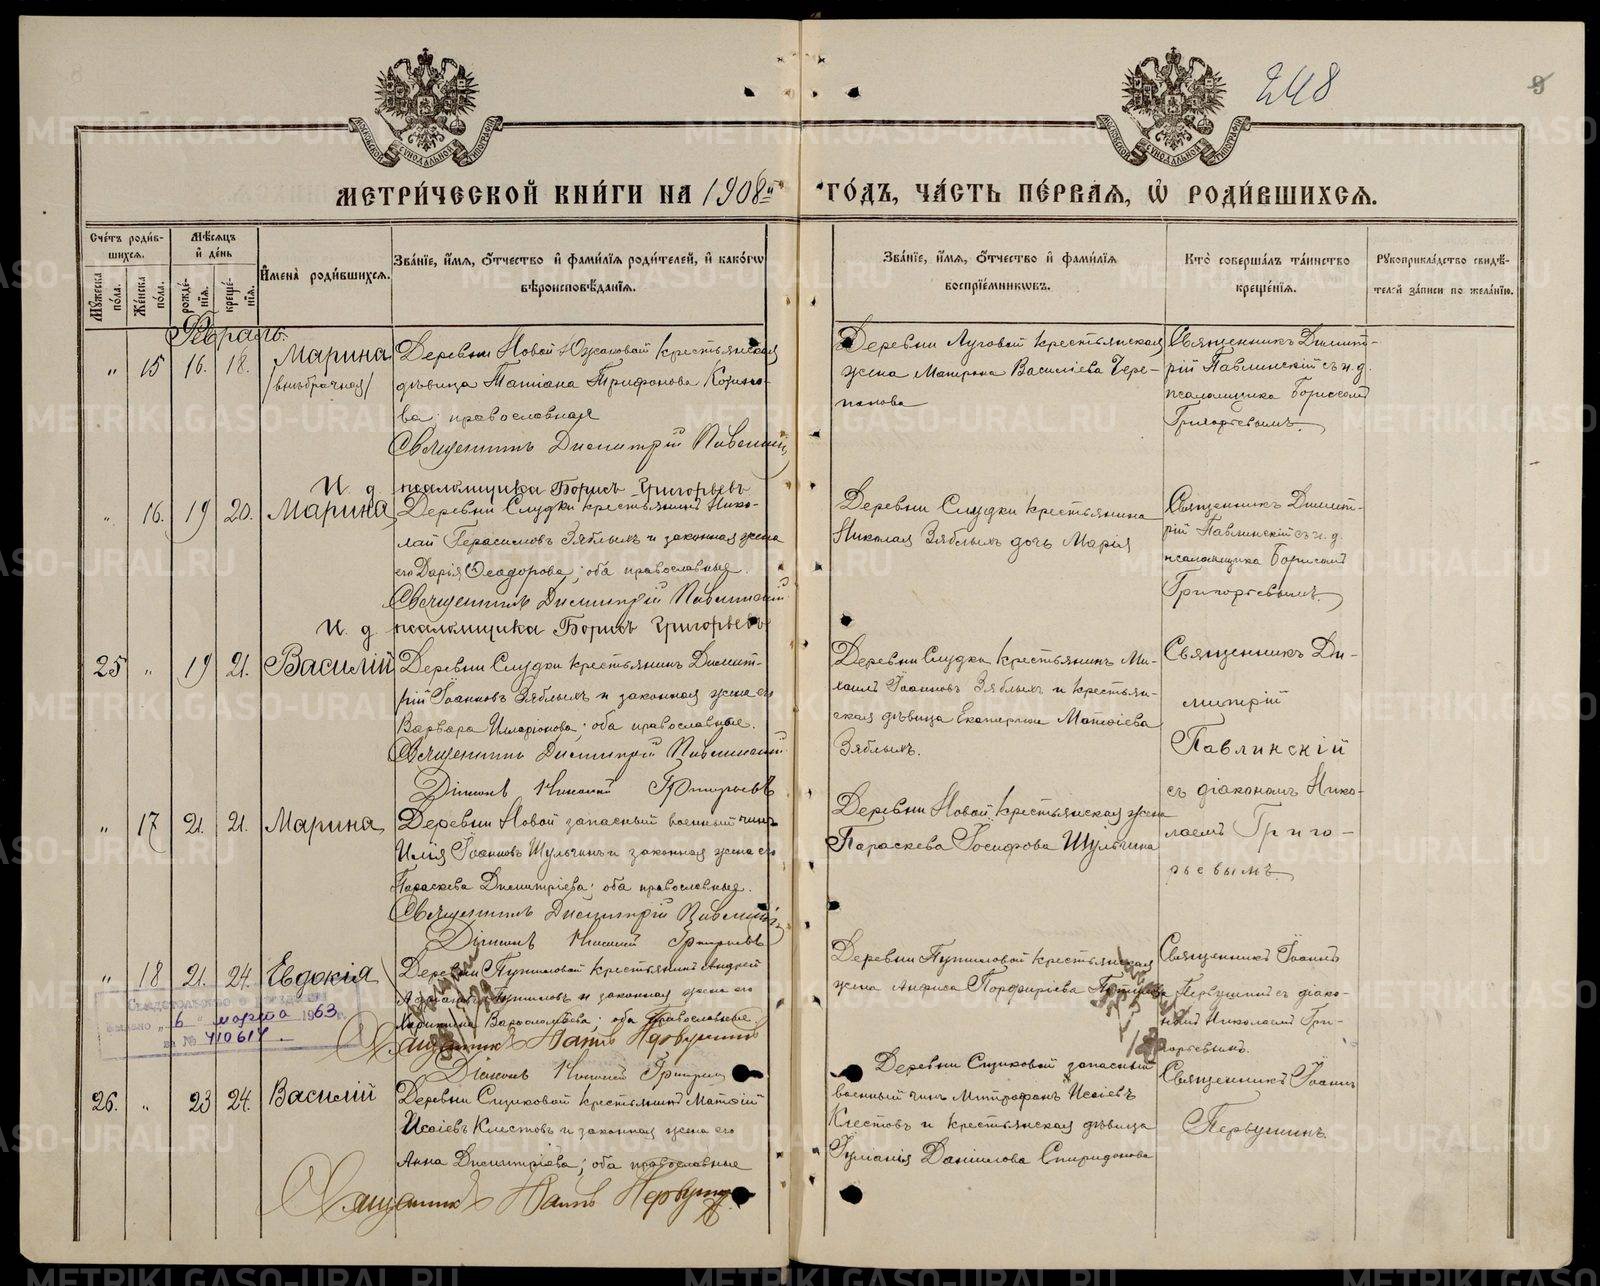 248
9
МОСКОВСКОЙ СѴНОДАЛЬНОЙ ТИПОГРАФІИ
МОСКОВСКОЙ СѴНОДАЛЬНОЙ ТИПОГРАФІИ
МЕТРИ́ЧЕСКОЙ КНИ́ГИ НА 1908й ГО́ДЪ, ЧА́СТЬ ПЕ́РВАЯ, Ѡ РОДИ́ВШИХСЯ.
Сче́тъ роди́в-
шихся.
Мꙋжеска по́ла.
Же́нска по́ла.
Мѣ́сяцъ
и҆ де́нь
рожде́-
нїя.
креще́-
нїя.
И҆мена̀ роди́вшихся.
Зва́нїе, и҆́мя, ѻ҆́тчество и҆ фами́лїя роди́телей, и҆ како́гѡ
вѣроисповѣ́данїя.
Зва́нїе, и҆́мя, ѻ҆́тчество и҆ фами́лїя
воспрїе́мникѡвъ.
Кто̀ соверша́лъ та́инство
креще́нїя.
Рꙋкоприкла́дство свидѣ́-
телей за́писи по жела́нїю.
Февраль.
" 15 16. 18. Марина
/внѣбрачная/
Деревни Новой Южаковой крестьянская
дѣвица Татіана Трифонова
ва; православная
Священникъ Димитрій Павлинскій
И. д. псаломщика Борисъ Григорьевъ
Деревни Луговой крестьянская
жена Матрона Василіева Чере-
панова
Священникъ Димит-
рій Павлинскій съ и. д.
псаломщика Борисомъ
Григорьевымъ.
" 16. 19 20. Марина
Деревни Слудки крестьянинъ Нико-
лай Герасимовъ Зяблыхъ и законная жена
его Дарія Ѳеодорова; оба православные.
Священникъ Димитрій Павлинскій
И. д. псаломщика Борисъ Григорьевъ
Деревни Слудки крестьянина
Николая Зяблыхъ дочь Марія
Священникъ Димит-
рій Павлинскій съ и. д.
псаломщика Борисомъ
Григорьевымъ.
25 " 19 21. Василій
Деревни Слудки крестьянинъ Димит-
рій Іоанновъ Зяблыхъ и законная жена его
Варвара Иларіонова; оба православные.
Священникъ Димитрій Павлинскій
Діаконъ Николай Григорьевъ
Деревни Слудки крестьянинъ Ми-
хаилъ Іоанновъ Зяблыхъ и крестьян-
ская дѣвица Екатерина Матѳіева
Зяблыхъ.
Священникъ Ди-
митрій
Павлинскій
съ діакономъ Нико-
лаемъ Григо-
рьевымъ.
" 17 21. 21. Марина
Деревни Новой запасный военный чинъ
Илія Іоанновъ Шульгинъ и законная жена его
Параскева Димитріева; оба православные.
Священникъ Димитрій Павлинскій
Діаконъ Николай Григорьевъ
Деревни Новой крестьянская жена
Параскева Іосифова Шульгина
" 18 21. 24. Евдокія
Деревни Пупышовой крестьянинъ Андрей
и законная жена его
Варѳоломѣева; оба православные.
Священникъ Іоаннъ Первушинъ
Діаконъ Николай Григорьевъ
Деревни крестьянская
жена Анфиса Порфиріева
Священникъ Іоаннъ
Первушинъ съ діако-
номъ Николаемъ Гри-
горьевымъ.
Свидетельство о рождении
выдано „6" марта 1963 г.
за № 410614
26. " 23 24. Василій
Деревни Сициковой крестьянинъ Матѳій
Исаіевъ Клестовъ и законная жена его
Анна Димитріева; оба православные
Священникъ Іоаннъ Первушинъ
Деревни Сициковой запасный
военный чинъ Митрофанъ Исаіевъ
Клестовъ и крестьянская дѣвица
Даніилова Спиридонова
Священникъ Іоаннъ
Первушинъ.
METRIKI.GASO-URAL.RU